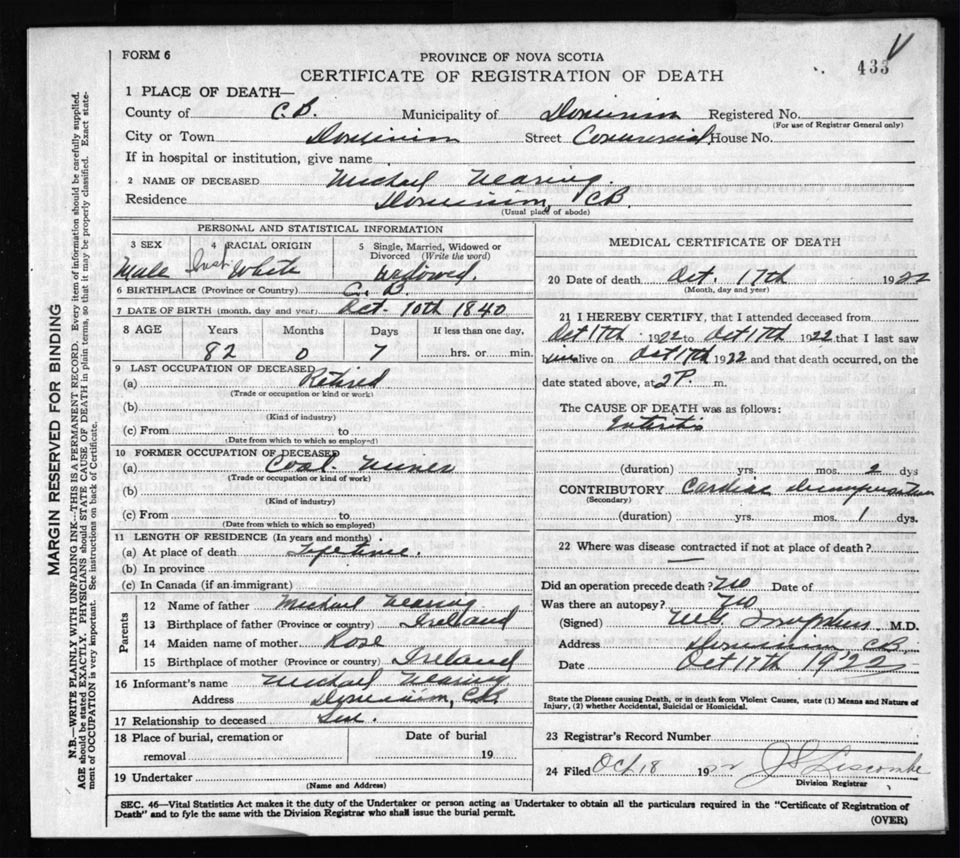 FORM 6
PROVINCE OF NOVA SCOTIA
433
CERTIFICATE OF REGISTRATION OF DEATH
1 PLACE OF DEATH—
County of C.B. Municipality of Dominion Registered No.
(For use of Registrar General only)
City or Town Dominion Street Commercial House No.
If in hospital or institution, give name
2 NAME OF DECEASED Michael Nearing.
Residence Dominion, CB.
(Usual place of abode)
PERSONAL AND STATISTICAL INFORMATION
3 SEX 4 RACIAL ORIGIN 5 Single, Married, Widowed or Divorced (Write the word)
Male Irish White Widowed.
6 BIRTHPLACE (Province or Country) C. B.
7 DATE OF BIRTH (month, day and year) Oct. 10th 1840
8 AGE Years Months Days If less than one day,
82 0 7 hrs. or min.
9 LAST OCCUPATION OF DECEASED
(a) Retired
(Trade or occupation or kind or work)
(b)
(Kind of industry)
(c) From to
(Date from which to which so employed)
10 FORMER OCCUPATION OF DECEASED
(a) Coal Miner
(Trade or occupation or kind of work)
(b)
(Kind of industry)
(c) From to
(Date from which to which so employed)
11 LENGTH OF RESIDENCE (In years and months)
(a) At place of death Lifetime.
(b) In province
(c) In Canada (if an immigrant)
Parents
12 Name of father Michael Nearing
13 Birthplace of father (Province or country) Ireland
14 Maiden name of mother Rose
15 Birthplace of mother (Province or country) Ireland
16 Informant's name Michael Nearing
Address Dominion, CB.
17 Relationship to deceased Son.
18 Place of burial, cremation or removal Date of burial 19
19 Undertaker
(Name and Address)
MEDICAL CERTIFICATE OF DEATH
20 Date of death Oct. 17th 1922
(Month, day and year)
21 I HEREBY CERTIFY, that I attended deceased from
Oct 17th 1922 to Oct 17th 1922 that I last saw
him alive on Oct 17th 1922 and that death occurred, on the
date stated above, at 2 P. m.
The CAUSE OF DEATH was as follows:
(duration) yrs. mos. 2 dys
CONTRIBUTORY Cardiac
(Secondary)
(duration) yrs. mos. 1 dys.
22 Where was disease contracted if not at place of death?
Did an operation precede death? No Date of
Was there an autopsy? No
(Signed) M.D.
Address Dominion CB
Date Oct 17th 1922
State the Disease causing Death, or in death from Violent Causes, state (1) Means and Nature of
Injury, (2) whether Accidental, Suicidal or Homicidal.
23 Registrar's Record Number
24 Filed Oct 18 1922 J S Liscombe
Division Registrar
SEC. 46—Vital Statistics Act makes it the duty of the Undertaker or person acting as Undertaker to obtain all the particulars required in the "Certificate of Registration of
Death" and to fyle the same with the Division Registrar who shall issue the burial permit.
(OVER)
MARGIN RESERVED FOR BINDING
N.B.—WRITE PLAINLY WITH UNFADING INK—THIS IS A PERMANENT RECORD. Every item of information should be carefully supplied.
AGE should be stated EXACTLY. PHYSICIANS should STATE CAUSE OF DEATH in plain terms, so that it may be properly classified. Exact state-
ment of OCCUPATION is very important. See instructions on back of Certificate.